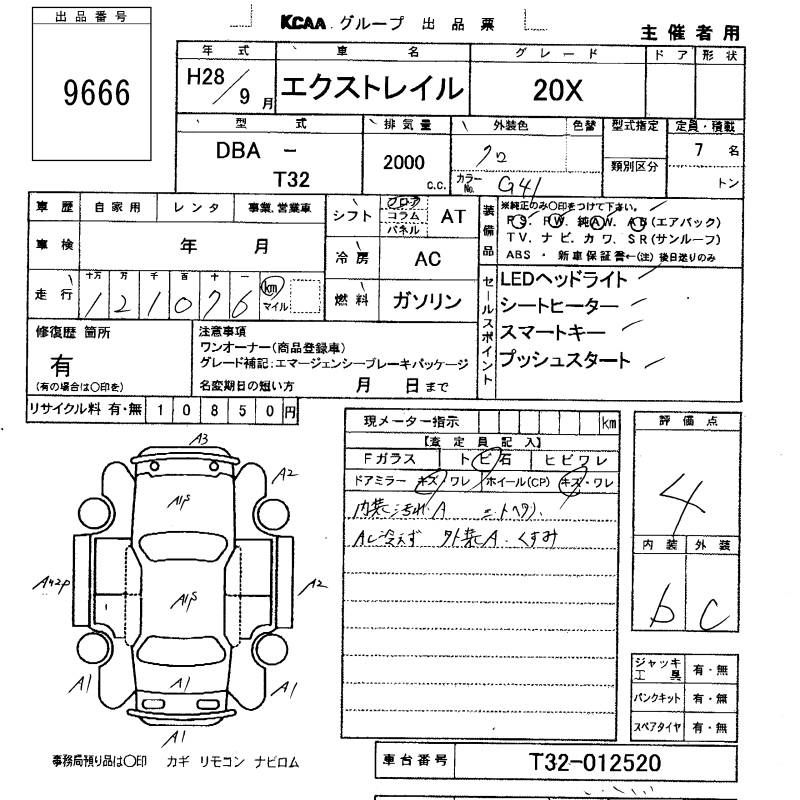 出品番号
9666
KCAA グループ 出品票
主催者用
年式 車名 グレード ドア 形状
H28/9月 エクストレイル 20X
型式 排気量 外装色 色替 型式指定 定員・積載
DBA - T32
2000 c.c.
クロ
カラーNo. G41
類別区分
7 名
トン
車歴 自家用 レンタ 事業、営業車
車検 年 月
走行 十万 万 千 百 十 一
121076 km マイル
シフト フロア コラム パネル AT
冷房 AC
燃料 ガソリン
装備品
※純正のみ○印をつけて下さい。
PS. PW. 純AW. AB(エアバック)
TV. ナビ. カワ. SR(サンルーフ)
ABS ・ 新車保証書←(注)後日送りのみ
セールスポイント
LEDヘッドライト
シートヒーター
スマートキー
プッシュスタート
修復歴 箇所
有
(有の場合は○印を)
注意事項
ワンオーナー(商品登録車)
グレード補記:エマージェンシーブレーキパッケージ
名変期日の短い方 月 日まで
リサイクル料 有・無 10850円
現メーター指示 km
【査定員記入】
Fガラス トビ石 ヒビワレ
ドアミラー キズ・ワレ ホイール(CP) キズ・ワレ
内装汚れA シートヘタリ.
AC冷えず 外装A. くすみ
評価点
4
内装 外装
b C
ジャッキ工具 有・無
パンクキット 有・無
スペアタイヤ 有・無
A3
A2
A1S
A42P
A1S
A2
A1
A1
A1
A1
事務局預り品は○印 カギ リモコン ナビロム
車台番号 T32-012520